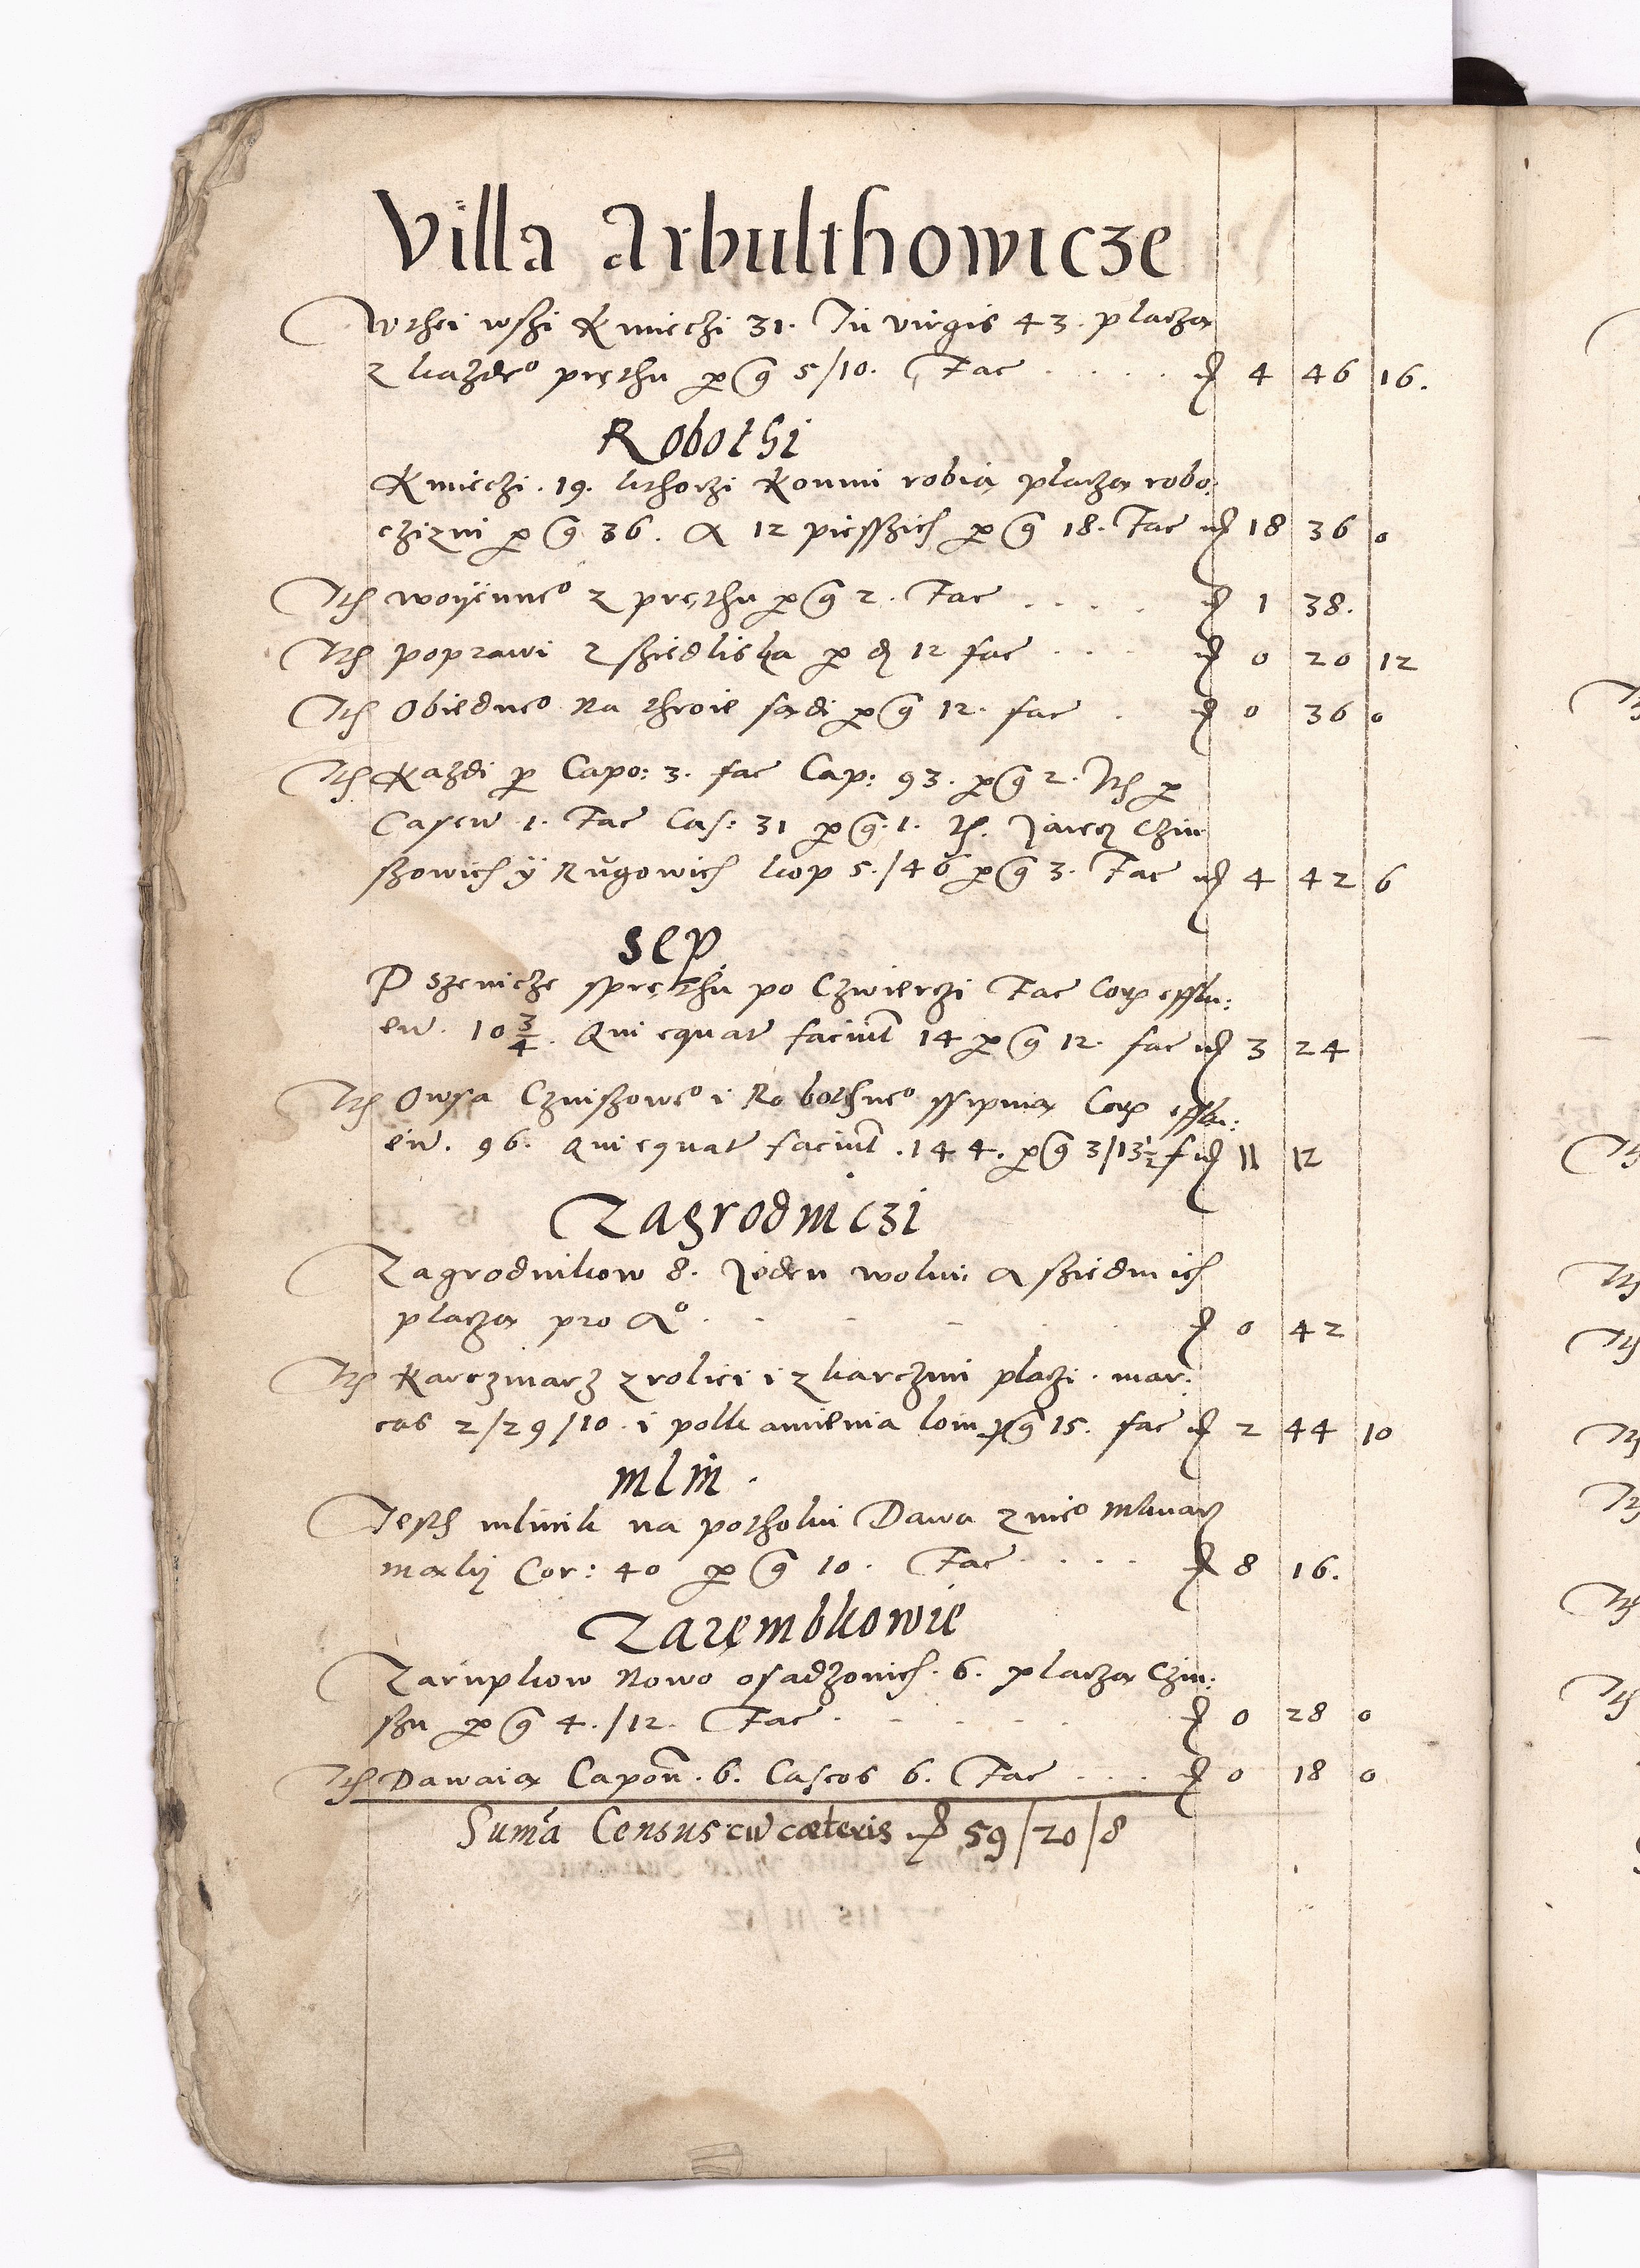 Villa Arbulthowicze
W thei wszi Kmieczi 31. In virgis 43. placza
z kazdeo pręthu per g 5/10. Fac . . . . . 4 46 16.
Robothi
Kmieczi. 19. kthorzi Konmi robia placza robo:
czizni per g 36. A 12 pieszich per g 18. Fac 18 36 0
Ith woyenneo z pręthu per g 2. Fac . . . . 1 38.
Ith poprawi z sziedliska per d 12 fac . . . 0 20 12
Ith Obiedneo Na throie sadi per g 12. fac . 0 36 0
Ith Kazdi per Capo: 3. fac Cap: 93. per g 2. Ith per
Caseu 1. Fac Cas: 31 per g. 1. It. Jaiecz Czin
szowich ÿ Rugowich kop 5./46 per g 3. Fac 4 42 6
Sep.
Pszenicze sprethu po Czwierczi Fac Cor
en. 10 3/4. Qui equat faciunt 14 per g 12. fac 3 24
Ith Owsa Czinszoweo i Robothneo ssipuia Cor
en. 96. Qui equat faciunt. 144. per g 3/13 1/2 f 11 12
Zagrodniczi
Zagrodnikow 8. Jeden wolni A sziedmich
placza pro Ao . . . . . . 0 42
Ith Karczmarz z roliei i z karczmi placzi. mar:
cas 2/29/10. i polk amienia loiu per g 15. fac 2 44 10
Mlin.
Jesth mlinik na pothoku Dawa z nieo Mlinarz
maky Cor: 40 per g 10. Fac . . . . 8 16.
Zarembkowie
Zarupkow Nowo osadzonich. 6. placza Czin:
szu per g 4./12. Fac . . . . . 0 28 0
Ith Dawaia Capon. 6. Caseos 6. Fac . . . . 0 18 0
Suma Census cum cæteris 59/20/8